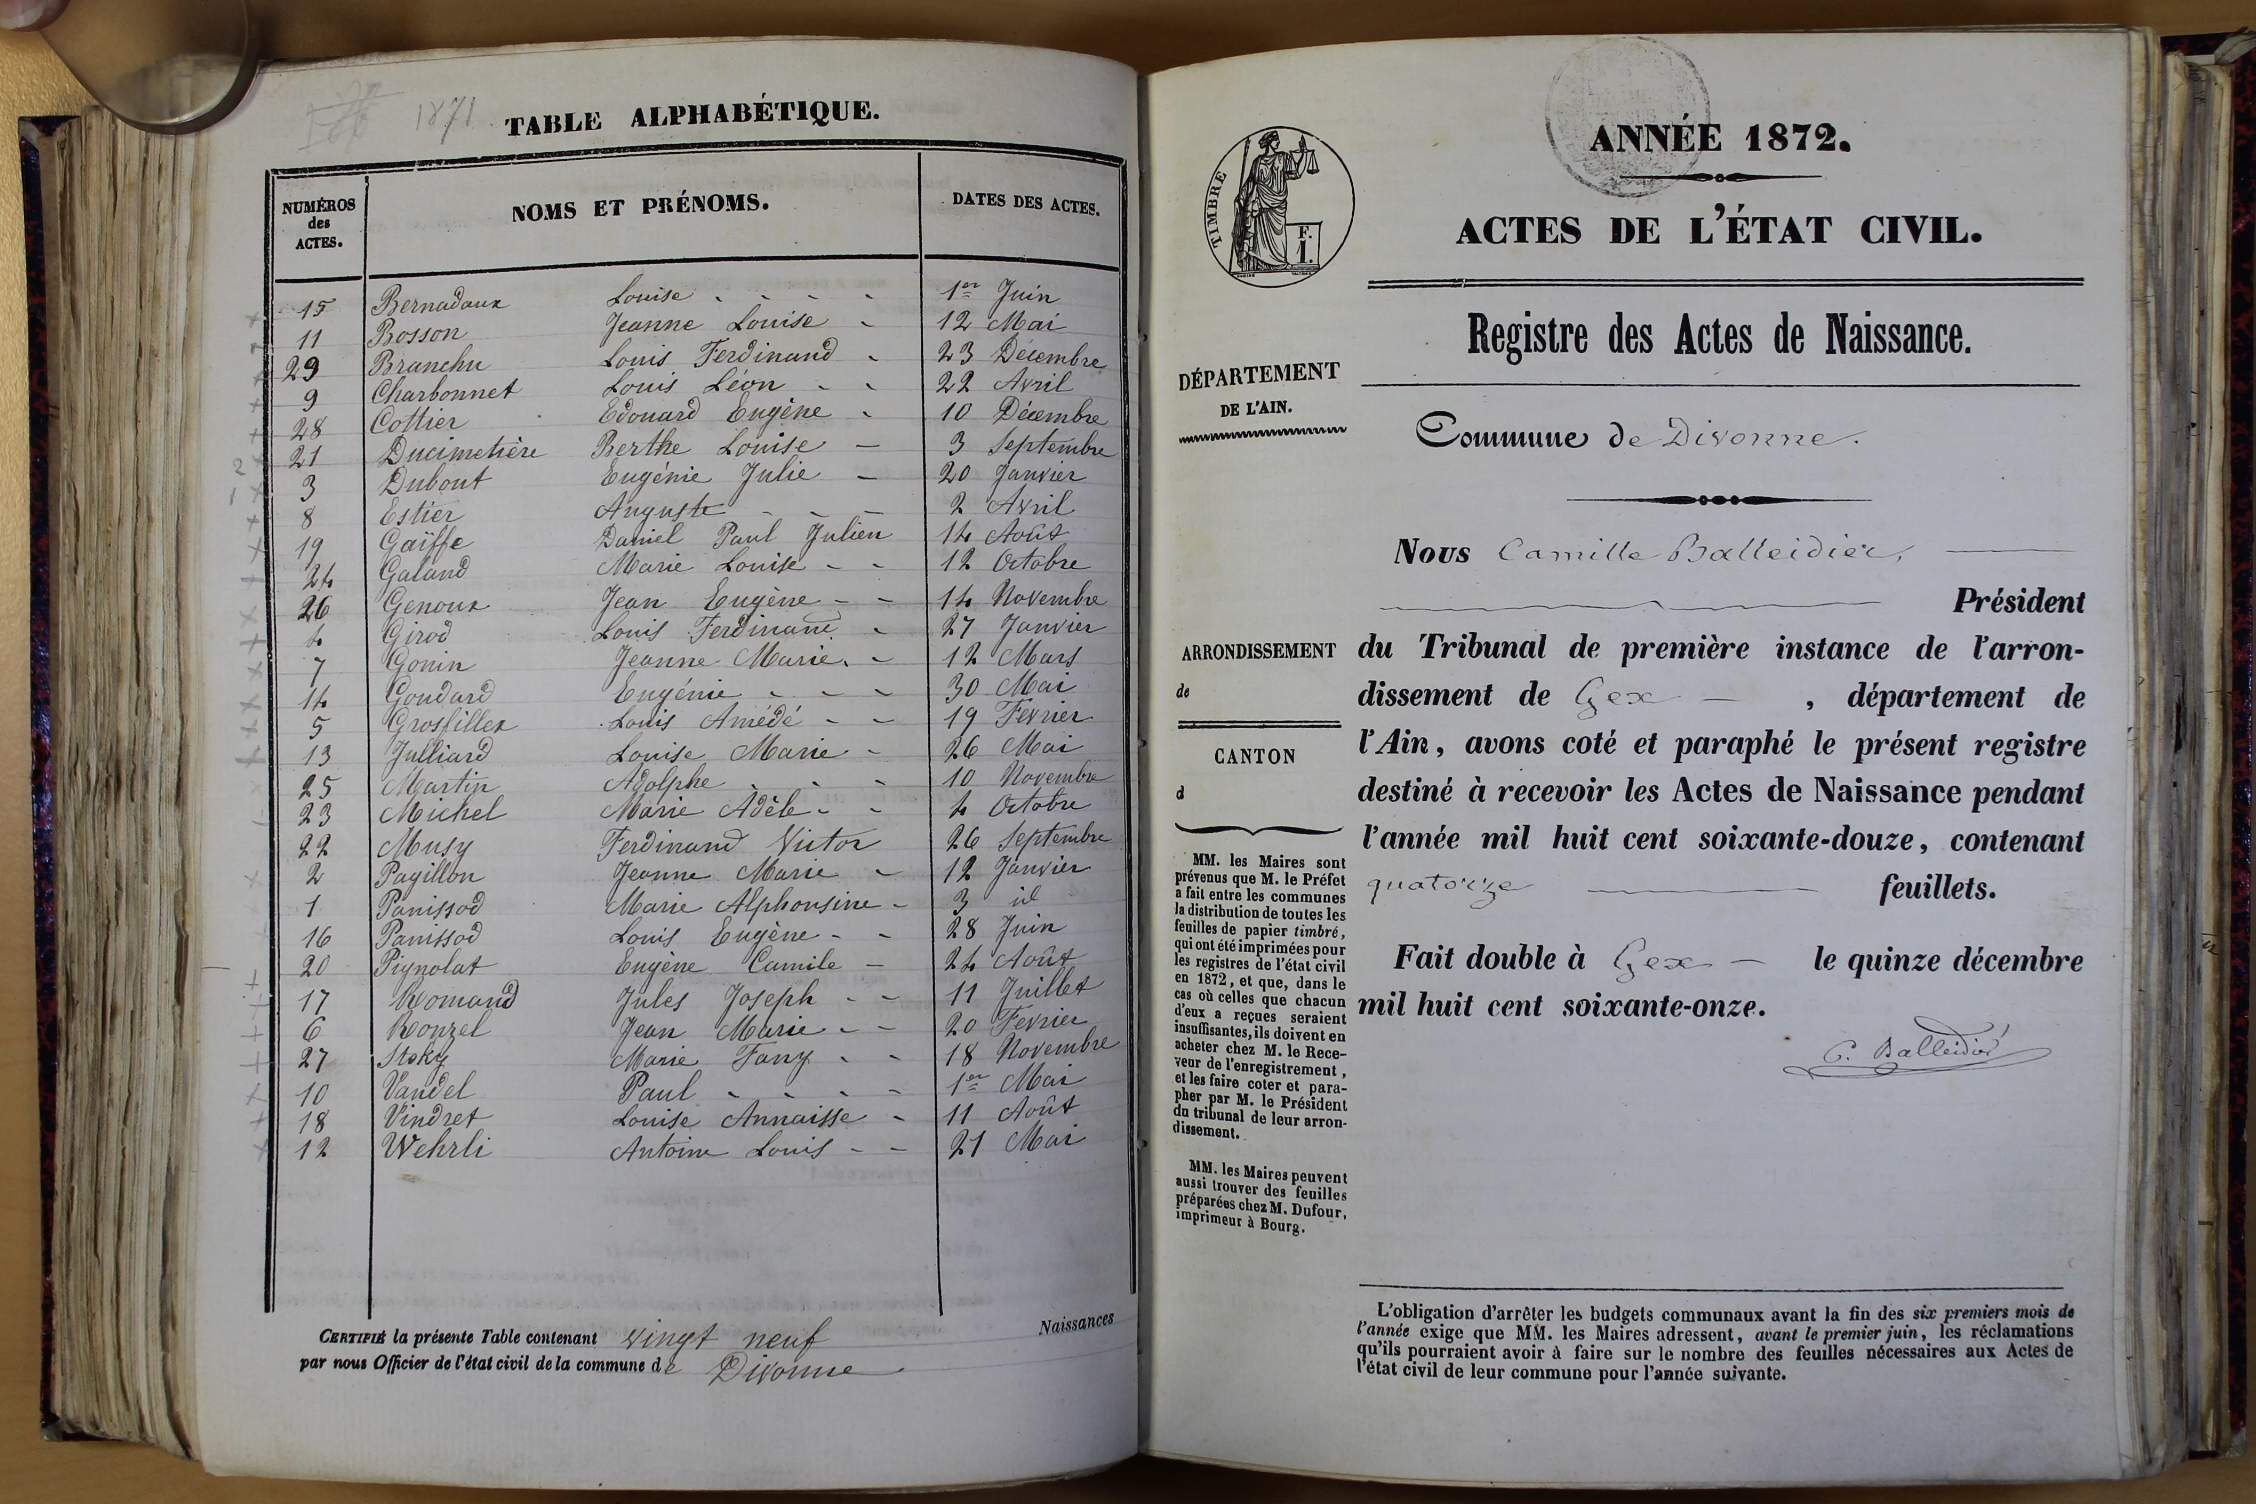 1871
TABLE ALPHABÉTIQUE.
NUMÉROS des ACTES. NOMS ET PRÉNOMS. DATES DES ACTES.
15 Bernadaux Louise 1er Juin
11 Bosson Jeanne Louise 12 Mai
29 Branchu Louis Ferdinand 23 Décembre
9 Charbonnet Louis Léon 22 Avril
28 Cottier Edouard Eugène 10 Décembre
21 Ducimetière Berthe Louise 3 Septembre
3 Dubout Eugénie Julie 20 Janvier
8 Estier Auguste 2 Avril
19 Gaïffe Daniel Paul Julien 14 Août
24 Galand Marie Louise 12 Octobre
26 Genoux Jean Eugène 14 Novembre
4 Girod Louis Ferdinand 27 Janvier
7 Gonin Jeanne Marie 12 Mars
14 Goudard Eugénie 30 Mai
5 Grosfillex Louis Amédé 19 Février
13 Julliard Louise Marie 26 Mai
25 Martin Adolphe 10 Novembre
23 Michel Marie Adèle 4 Octobre
22 Musy Ferdinand Victor 26 Septembre
2 Pagillon Jeanne Marie 12 Janvier
1 Panissod Marie Alphonsine 3 id
16 Panissod Louis Eugène 28 Juin
20 Pignolat Eugène Camile 24 Août
17 Romand Jules Joseph 11 Juillet
6 Ronzel Jean Marie 20 Février
27 Stoky Marie Fany 18 Novembre
10 Vandel Paul 1er Mai
18 Vindret Louise Annaisse 11 Août
12 Wehrli Antoine Louis 21 Mai
CERTIFIÉ la présente Table contenant vingt neuf Naissances
par nous Officier de l'état civil de la commune de Divonne
TIMBRE
F.
1.
ANNÉE 1872.
ACTES DE L'ÉTAT CIVIL.
Registre des Actes de Naissance.
DÉPARTEMENT
DE L'AIN.
Commune de Divonne.
Nous Camille Balleidier,
Président
ARRONDISSEMENT
de
CANTON
d
du Tribunal de première instance de l'arron-
dissement de Gex, département de
l'Ain, avons coté et paraphé le présent registre
destiné à recevoir les Actes de Naissance pendant
l'année mil huit cent soixante-douze, contenant
quatorze feuillets.
Fait double à Gex le quinze décembre
mil huit cent soixante-onze.
C. Balleidier
MM. les Maires sont
prévenus que M. le Préfet
a fait entre les communes
la distribution de toutes les
feuilles de papier timbré,
qui ont été imprimées pour
les registres de l'état civil
en 1872, et que, dans le
cas où celles que chacun
d'eux a reçues seraient
insuffisantes, ils doivent en
acheter chez M. le Rece-
veur de l'enregistrement,
et les faire coter et para-
pher par M. le Président
du tribunal de leur arron-
dissement.
MM. les Maires peuvent
aussi trouver des feuilles
préparées chez M. Dufour,
imprimeur à Bourg.
L'obligation d'arrêter les budgets communaux avant la fin des six premiers mois de
l'année exige que MM. les Maires adressent, avant le premier juin, les réclamations
qu'ils pourraient avoir à faire sur le nombre des feuilles nécessaires aux Actes de
l'état civil de leur commune pour l'année suivante.